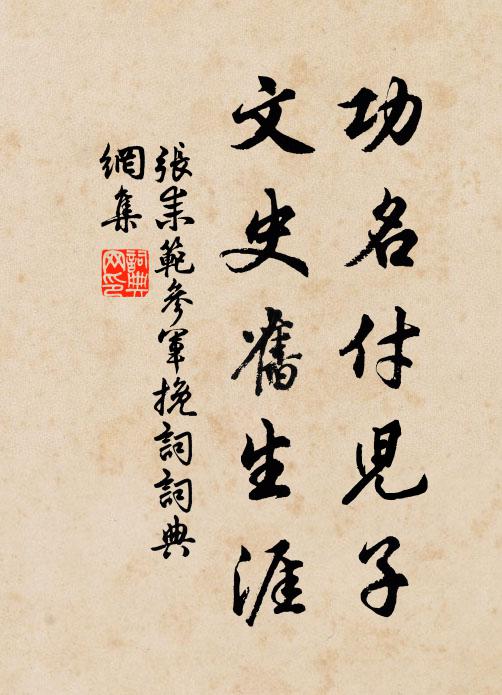 功名付兒子
文史舊生涯
張朱範參軍挽詞詞典
網集
詞典
网印